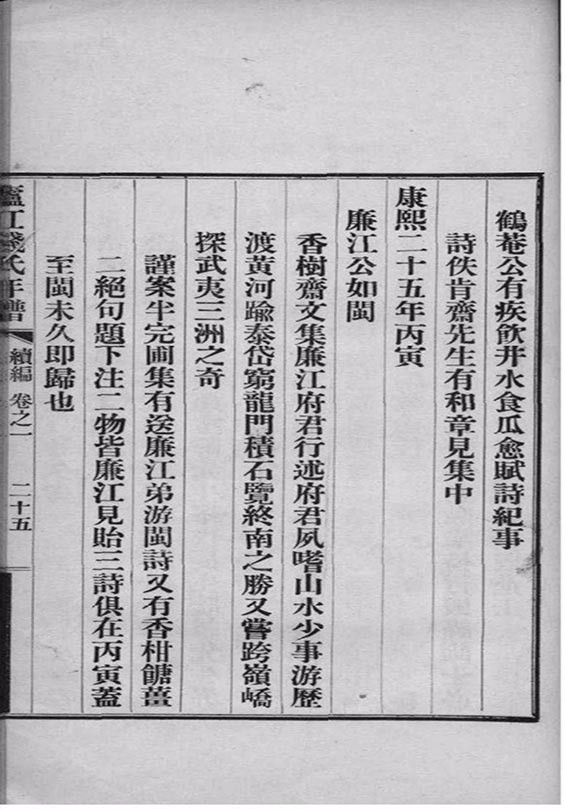 鶴菴公有疾飲井水食瓜愈賦詩紀事
詩佚肯齋先生有和章見集中
康熙二十五年丙寅
廉江公如閩
香樹齋文集廉江府君行述府君夙嗜山水少事游歷
渡黃河踰泰岱窮龍門積石覽終南之勝又嘗跨嶺嶠
探武夷三洲之奇
謹案半完圃集有送廉江弟游閩詩又有香柑餹薑
二絕句題下注二物皆廉江見貽三詩俱在丙寅蓋
至閩未久即歸也
廬江錢氏年譜 續編 卷之一 二十五